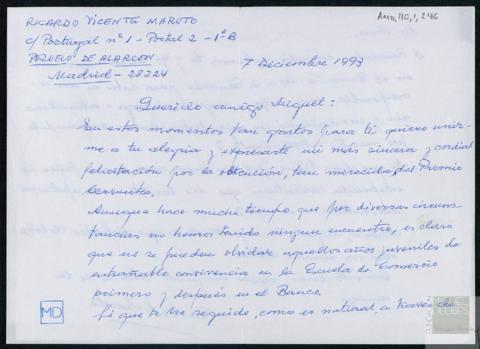 RICARDO VICENTE MAROTO
c/ Portugal nº 1 - Portal 2 - 1º B
POZUELO DE ALARCON
Madrid - 28224
Amo, 110, 1, 246
7 Diciembre 1993
Querido amigo Miguel:
En estos momentos tan gratos para ti quiero unir-
me a tu alegria y expresarte mi más sincera y cordial
felicitación por la obtención, tan merecida, del Premio
Cervantes.
Aunque hace mucho tiempo que por diversas circuns
tancias no hemos tenido ningun encuentro, es claro
que no se pueden olvidar aquellos años juveniles de
entrañable convivencia en la Escuela de Comercio
primero y después en el Banco.
Si que te he seguido, como es natural, a traves de
MD